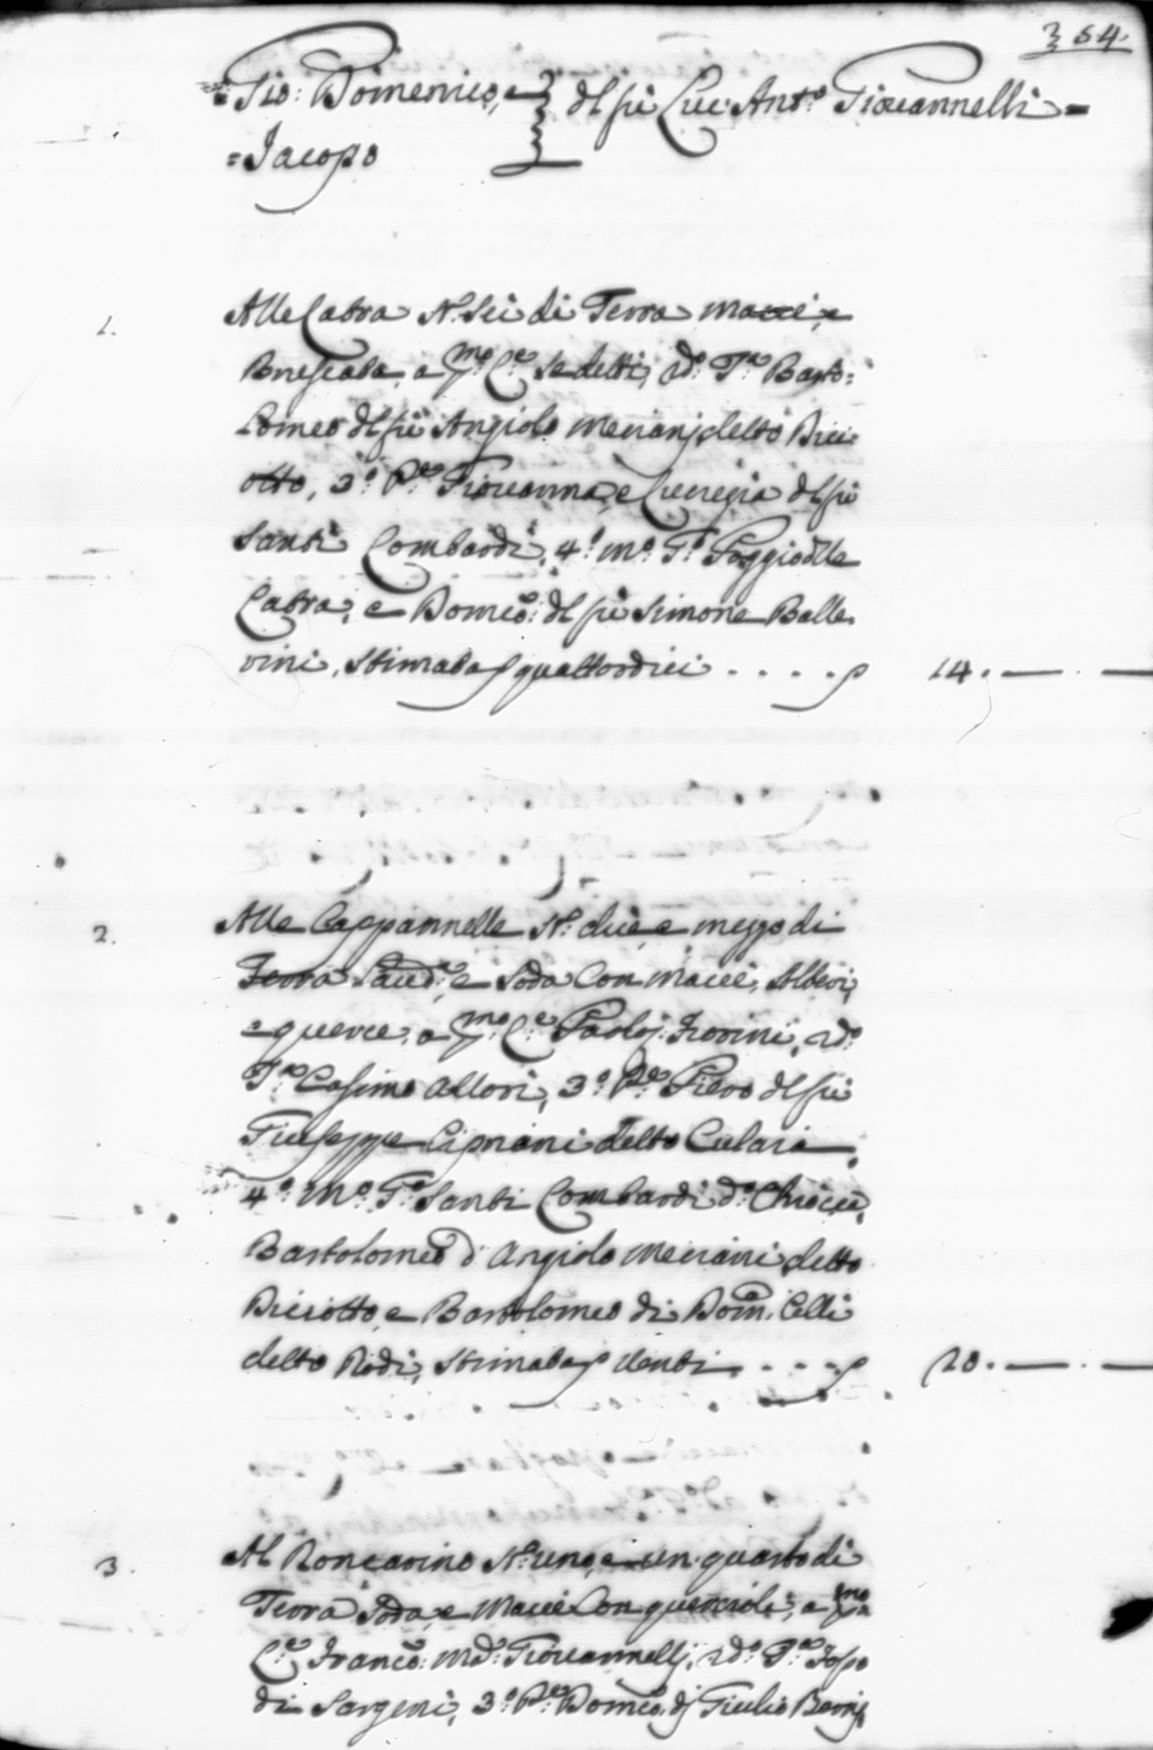 354.
=Gio: Domenico, e } dl fù Luc: Ant.º Giovannelli=
=Jacopo
1. Alle Cabra N. Sei di Terra macci, e
a p.mo C.e se detti, 2d.º T.a Barto=
lomeo dl fù Angiolo Meriani detto Bici=
otto, 3.º P.e Giovanna, e Lucregia dl fù
Santi Lombardi, 4.º m.º T.º Poggio dlle
Cabra, e Domco: dl fù Simone Balle.
rini, Stimata p quattordici . . . . p 14. — . —
2. Alle Cappannelle N. due, e mezzo di
Terra Laud.e, e Soda Con Macci, Alberi,
e querce, a p.mo C.e Paolo Fiorini, 2d.º
T.a Cosimo Allori, 3.º P.e Piero dl fù
Giuseppe Cipriani detto Culaia,
4.º M.º T.º Santi Lombardi d.º Chiocci,
Bartolomeo d'Angiolo Meriani detto
Biciotto, e Bartolomeo di Dom: Celli
detto Rodi, Stimata p venti . . . . p 20. — . —
3. Al Roncarino N. uno, e un quarto di
Terra Soda, e Macci Con quercioli, a p.mo
C.e Franco: Md: Giovannelli, 2d.º T.a Fosso
di Sargeni, 3.º P.e Domco. di Giulio